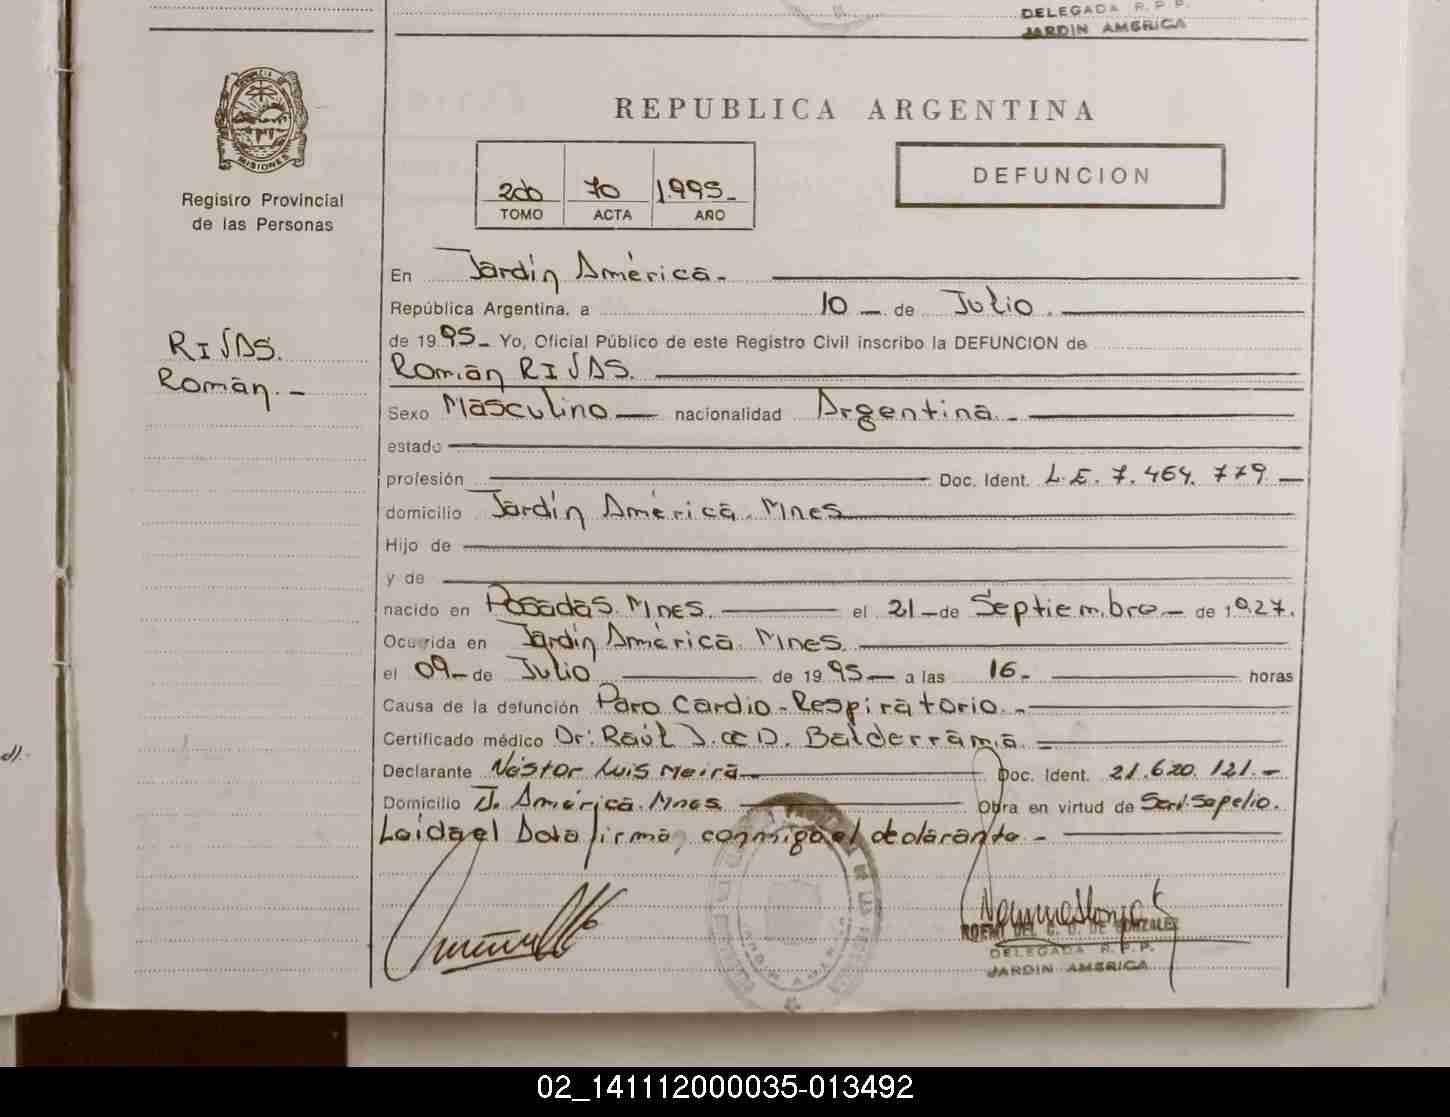 DELEGADA R. P. P.
JARDIN AMERICA
PROVINCIA DE
MISIONES
Registro Provincial
de las Personas
REPUBLICA ARGENTINA
2do 70 1.995_
TOMO ACTA AÑO
DEFUNCION
En Jardín América._
República Argentina, a 10 _ de Julio.
de 1995_ Yo, Oficial Público de este Registro Civil inscribo la DEFUNCION de
RIVAS.
Román._
Román RIVAS.
Sexo Masculino nacionalidad Argentina._
estado
profesión Doc. Ident. L.E. 7.464.779.
domicilio Jardín América. Mnes
Hijo de
y de
nacido en Posadas. Mnes. el 21_de Septiembre_ de 1927.
Ocurrida en Jardín América. Mnes.
el 09_de Julio de 1995_ a las 16._ horas
Causa de la defunción Paro Cardio-Respiratorio._
Certificado médico Dr: Raúl J. de D. Balderrama.
Declarante Néstor Luis Meira Doc. Ident. 21.620.121._
Domicilio J. América. Mnes Obra en virtud de Serv. Sepelio.
Leída el Acta firma, conmigo el declarante._
DEL C. D. DE GONZALEZ
DELEGADA R. P. P.
JARDIN AMERICA
02_141112000035-013492